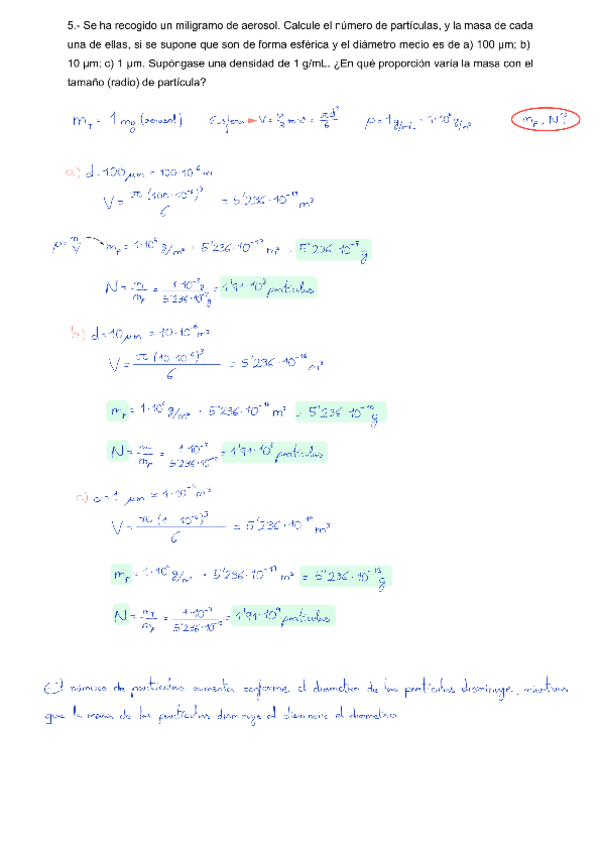 5.- Se ha recogido un miligramo de aerosol. Calcule el número de partículas, y la masa de cada
una de ellas, si se supone que son de forma esférica y el diámetro mecio es de a) 100 µm; b)
10 µm; c) 1 µm. Supóngase una densidad de 1 g/mL. ¿En qué proporción varía la masa con el
tamaño (radio) de partícula?
m_T = 1 mg (aerosol) Esfera V = = πd³/6 ρ = 1 g/mL = 1·10⁶ g/m³ m_P, N?
a) d = 100 µm = 100·10⁻⁶ m
V = π (100·10⁻⁶)³ / 6 = 5'236·10⁻¹³ m³
ρ = m/V m_P = 1·10⁶ g/m³ · 5'236·10⁻¹³ m³ = 5'236·10⁻⁷ g
N = m/m_P = 1·10⁻³ / 5'236·10⁻⁷ = 1'91·10³ partículas
b) d = 10 µm = 10·10⁻⁶ m³
V = π (10·10⁻⁶)³ / 6 = 5'236·10⁻¹⁶ m³
m_P = 1·10⁶ g/m³ · 5'236·10⁻¹⁶ m³ = 5'236·10⁻¹⁰ g
N = m/m_P = 1·10⁻³ / 5'236·10⁻¹⁰ = 1'91·10⁶ partículas
c) d = 1 µm = 1·10⁻⁶ m³
V = π (1·10⁻⁶)³ / 6 = 5'236·10⁻¹⁹ m³
m_P = 1·10⁶ g/m³ · 5'236·10⁻¹⁹ m³ = 5'236·10⁻¹³ g
N = m_T/m_P = 1·10⁻³ / 5'236·10⁻¹³ = 1'91·10⁹ partículas
El número de partículas aumenta conforme el diámetro de las partículas disminuye, mientras
que la masa de las partículas disminuye al disminuir el diámetro